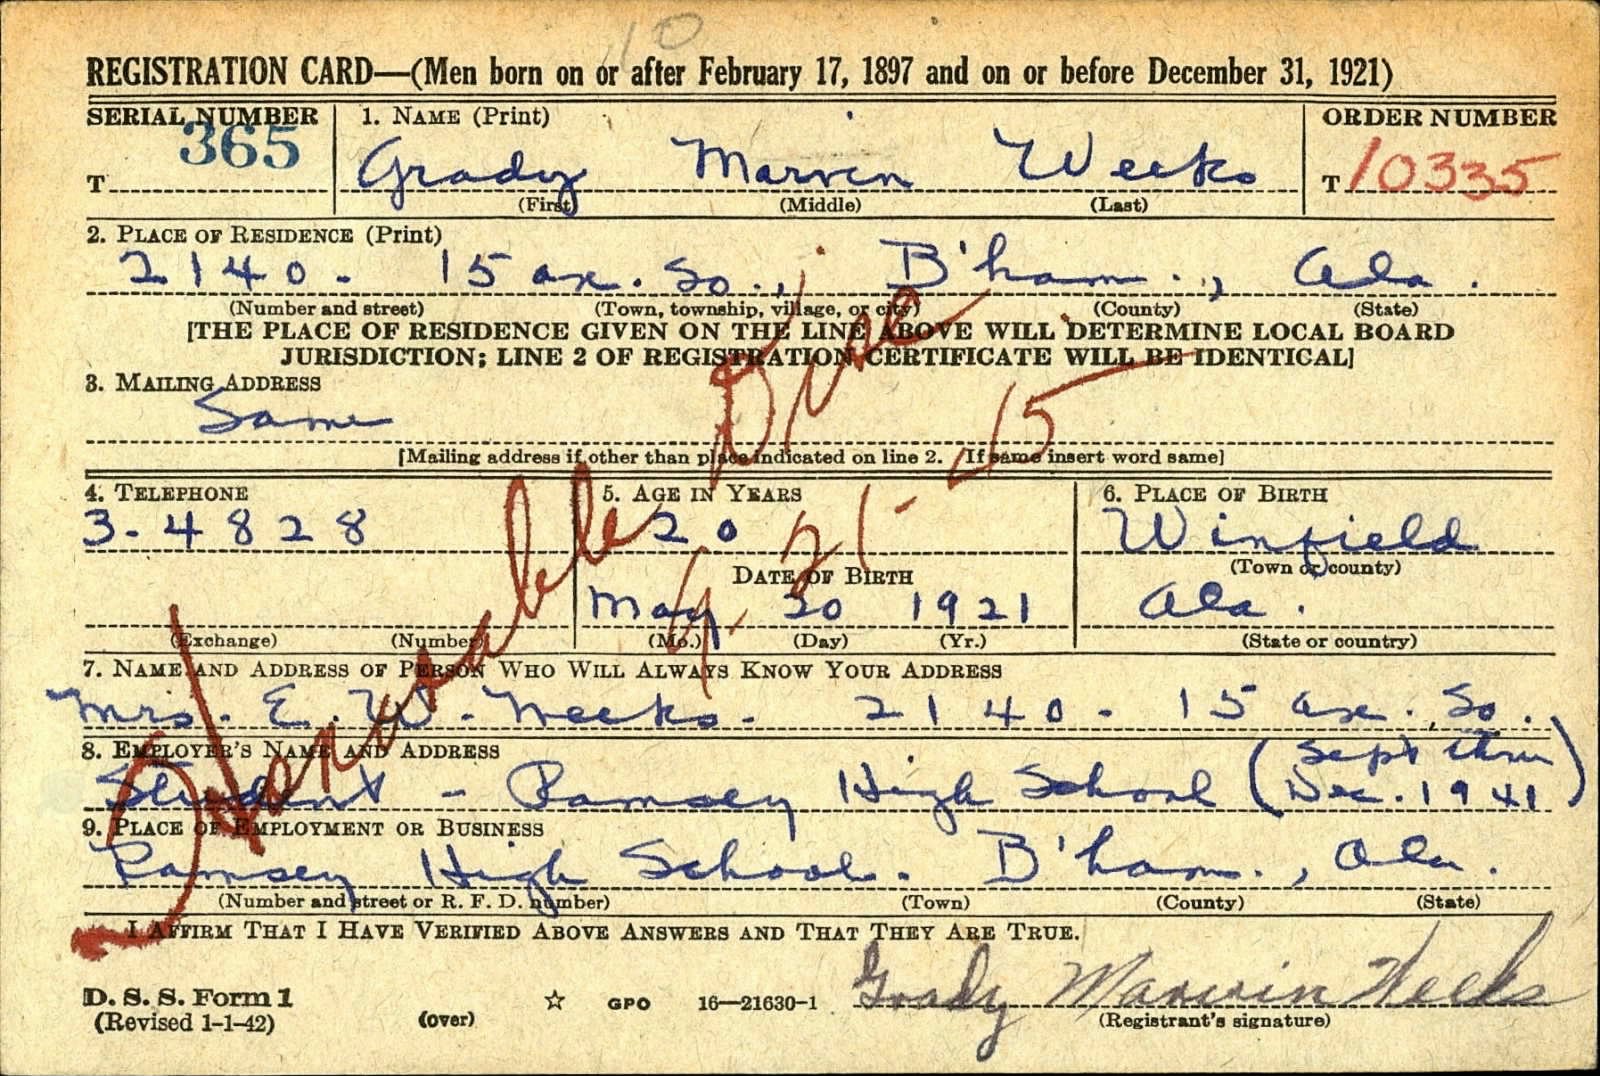 10
REGISTRATION CARD—(Men born on or after February 17, 1897 and on or before December 31, 1921)
SERIAL NUMBER 1. NAME (Print) ORDER NUMBER
T 365 Grady Marvin Weeks T 10335
(First) (Middle) (Last)
2. PLACE OF RESIDENCE (Print)
2140 - 15 ave. So., B'ham., Ala.
(Number and street) (Town, township, village, or city) (County) (State)
[THE PLACE OF RESIDENCE GIVEN ON THE LINE ABOVE WILL DETERMINE LOCAL BOARD
JURISDICTION; LINE 2 OF REGISTRATION CERTIFICATE WILL BE IDENTICAL]
3. MAILING ADDRESS
Same
[Mailing address if other than place indicated on line 2. If same insert word same]
4. TELEPHONE 5. AGE IN YEARS 6. PLACE OF BIRTH
3-4828 20 Winfield
DATE OF BIRTH (Town or county)
May 20 1921 Ala.
(Exchange) (Number) (Mo.) (Day) (Yr.) (State or country)
7. NAME AND ADDRESS OF PERSON WHO WILL ALWAYS KNOW YOUR ADDRESS
Mrs. E. W. Weeks - 2140 - 15 ave. So.
8. EMPLOYER'S NAME AND ADDRESS
Student - Ramsey High School (Sept thru
Dec. 1941)
9. PLACE OF EMPLOYMENT OR BUSINESS
Ramsey High School. B'ham., Ala.
(Number and street or R. F. D. number) (Town) (County) (State)
I AFFIRM THAT I HAVE VERIFIED ABOVE ANSWERS AND THAT THEY ARE TRUE.
D. S. S. Form 1
(Revised 1-1-42) (over) ☆ GPO 16—21630-1 Grady Marvin Weeks
(Registrant's signature)
Honorable Disc